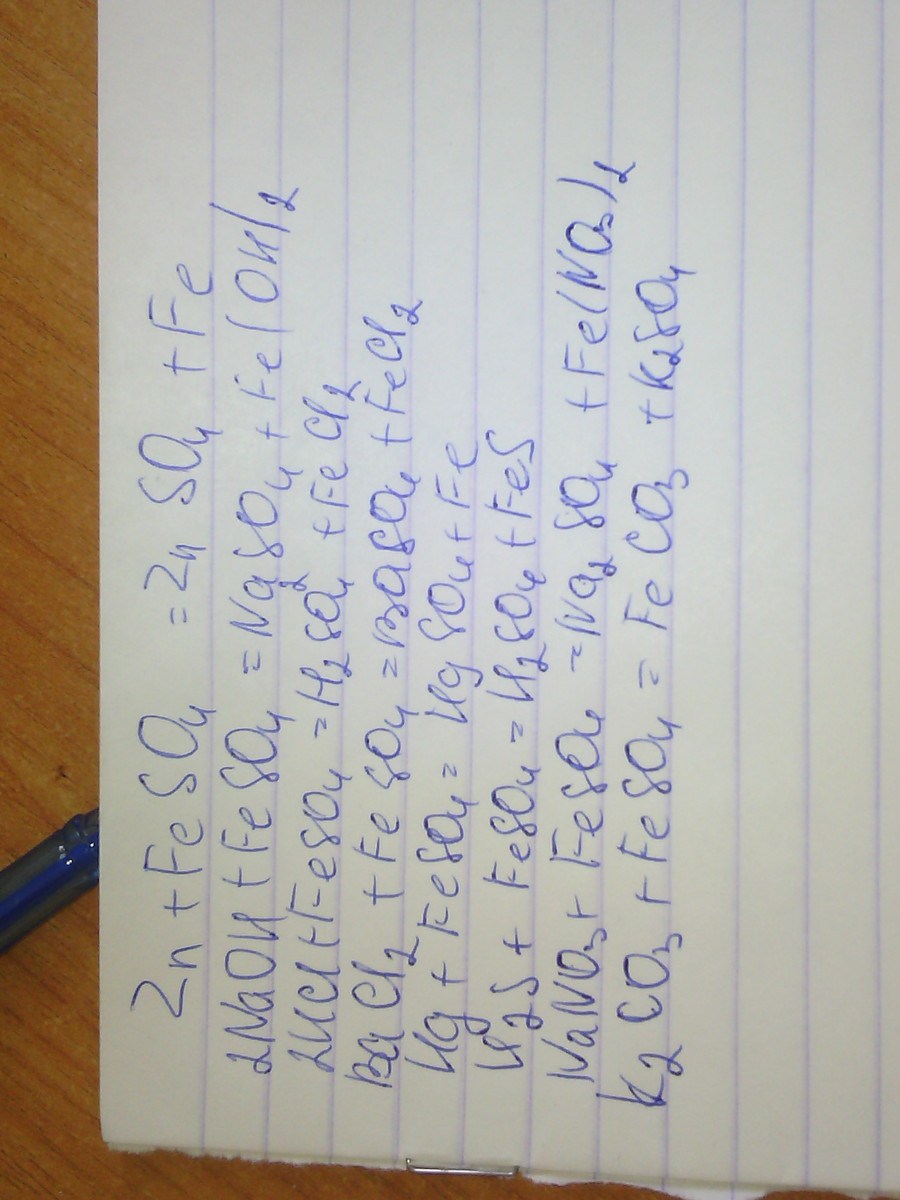 Zn + FeSO4 = ZnSO4 + Fe
2NaOH + FeSO4 = Na2SO4 + Fe(OH)2
2HCl + FeSO4 = H2SO4 + FeCl2
BaCl2 + FeSO4 = BaSO4 + FeCl2
Hg + FeSO4 = HgSO4 + Fe
H2S + FeSO4 = H2SO4 + FeS
NaNO3 + FeSO4 = Na2SO4 + Fe(NO3)2
K2CO3 + FeSO4 = FeCO3 + K2SO4